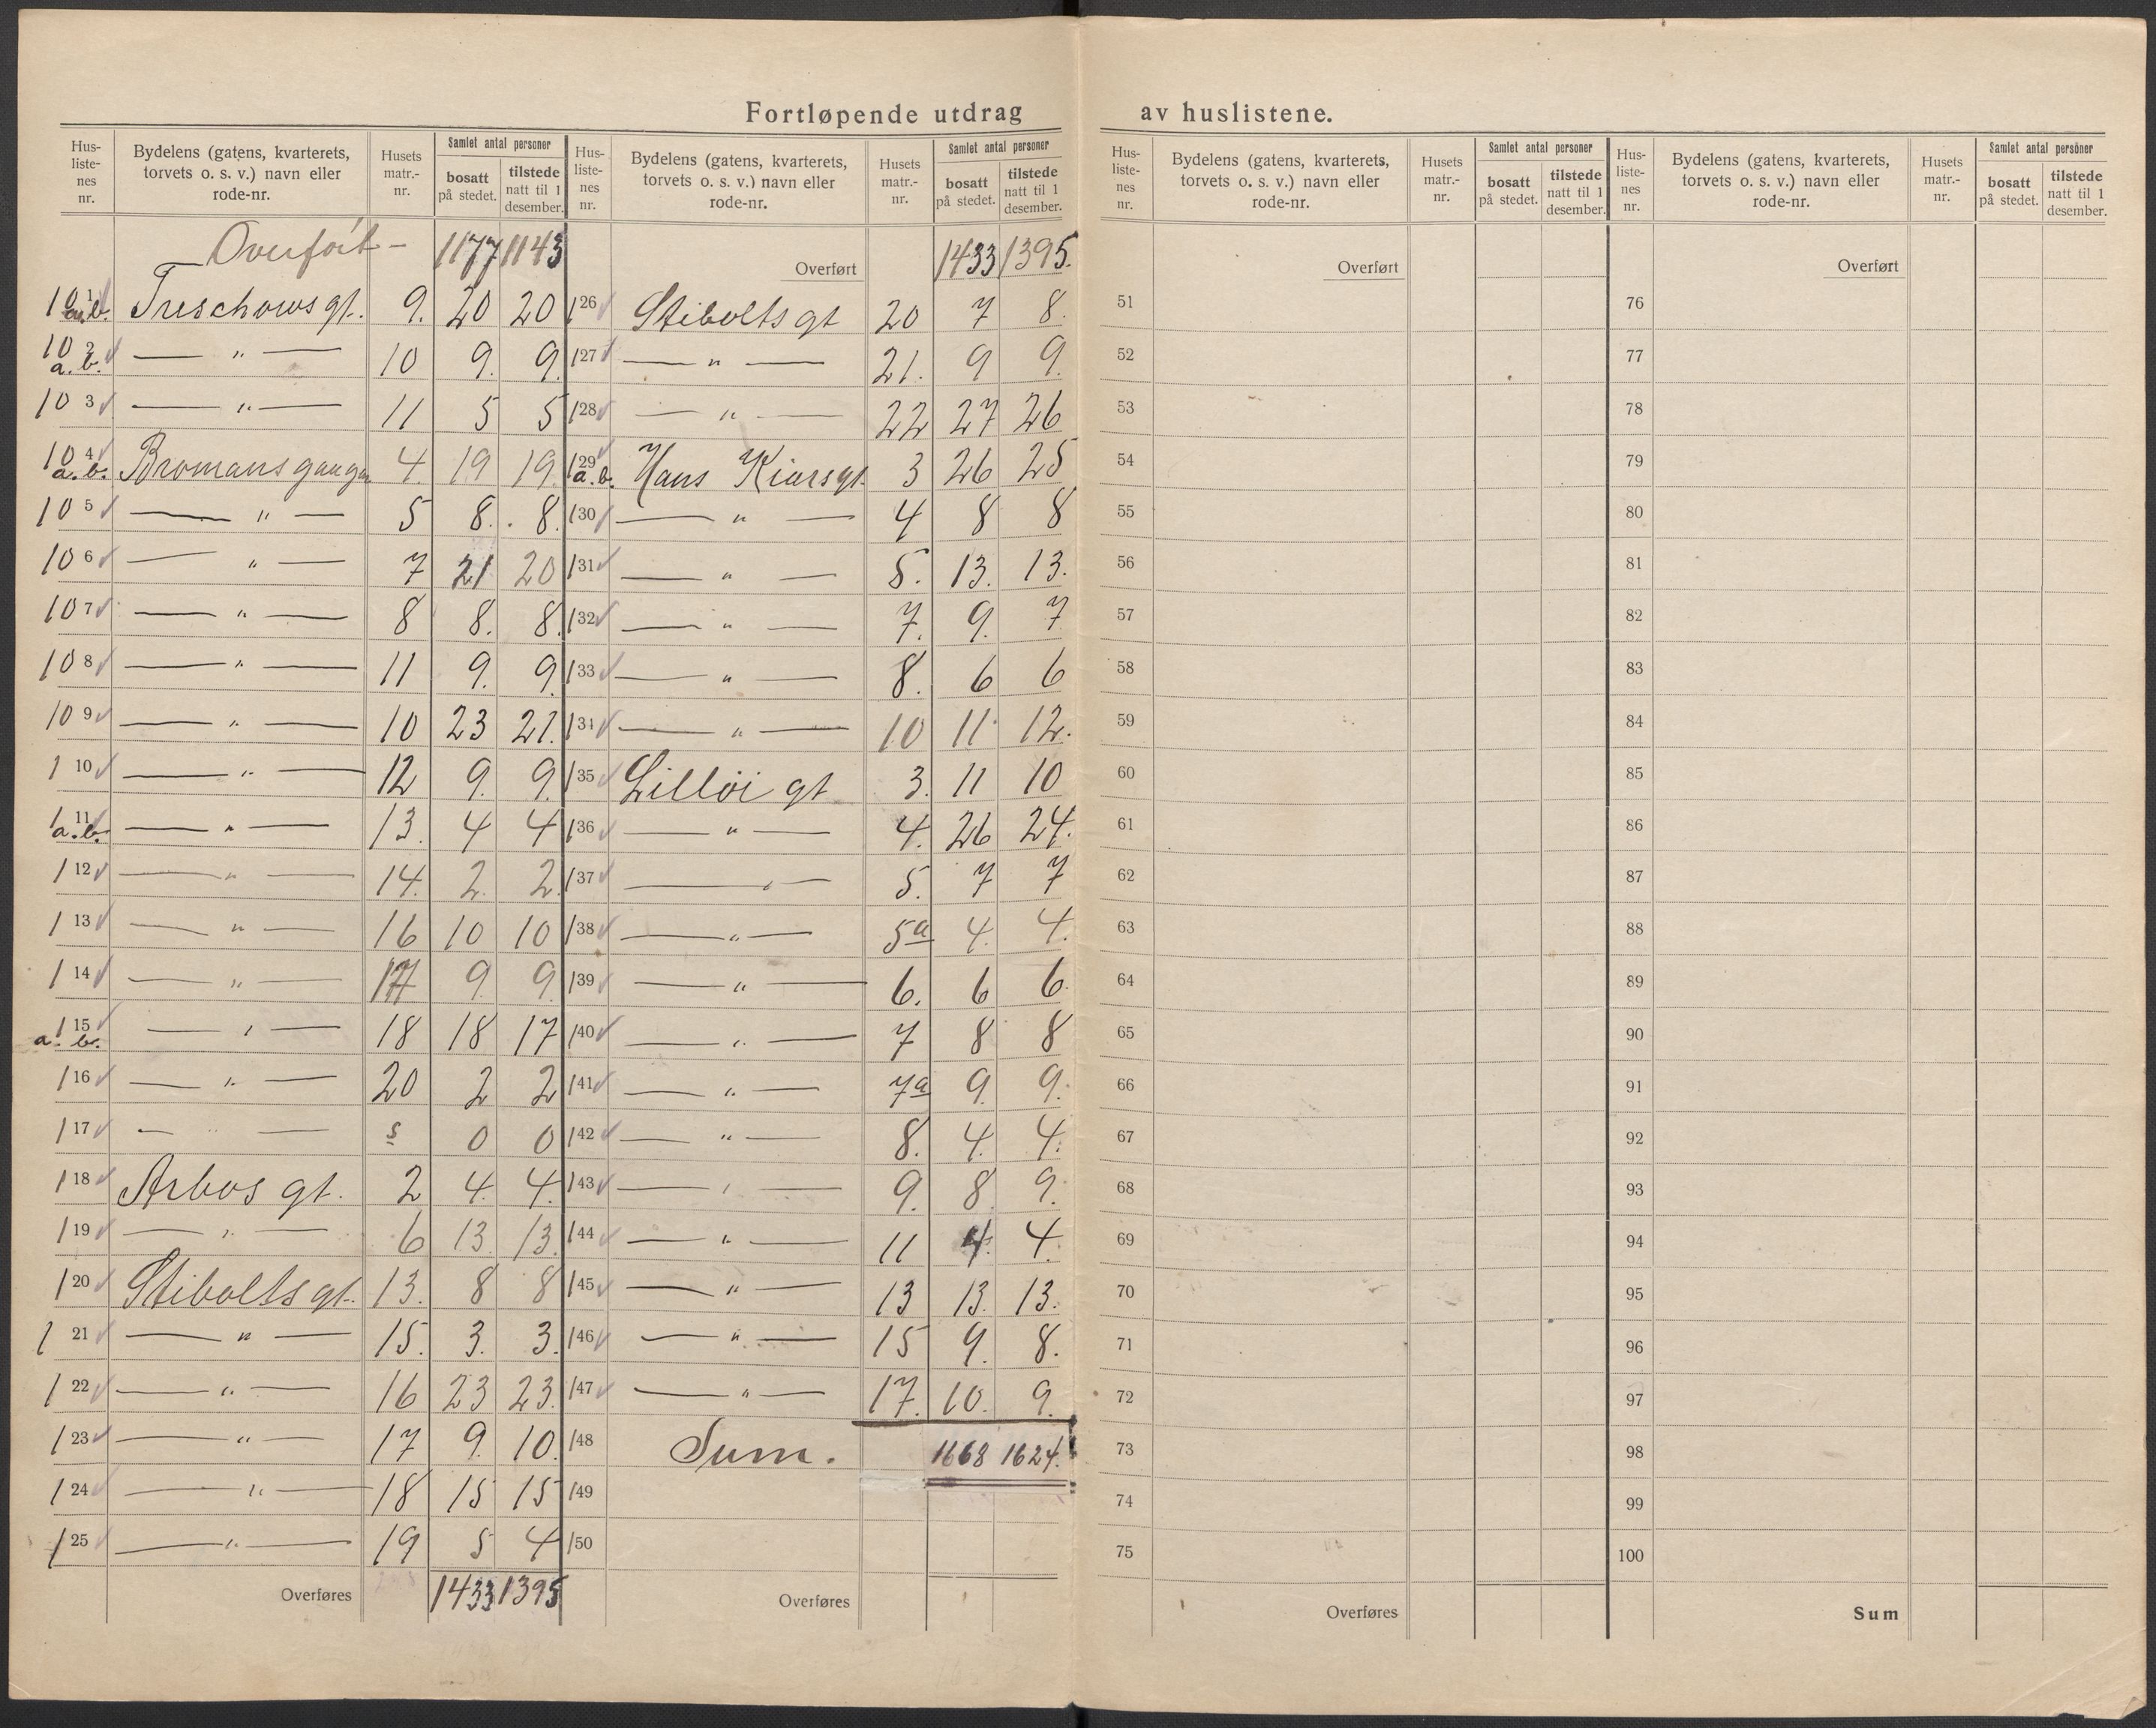 Fortløpende utdrag av huslistene.
Hus-listenes nr. | Bydelens (gatens, kvarterets, torvets o. s. v.) navn eller rode-nr. | Husets matr.-nr. | Samlet antal personer bosatt på stedet. | tilstede natt til 1 desember.
Overført - 1177 1143
101 a.b. Treschows gt. 9. 20 20
102 a. b. — " — 10 9. 9.
103 — " — 11 5 5
104 a. b. Bromans gangen 4. 19 19
105 — " — 5 8. 8.
106 — " — 7 21 20
107 — " — 8 8. 8.
108 — " — 11 9. 9.
109 — " — 10 23 21.
110 — " — 12 9. 9.
111 a. b. — " — 13. 4 4
112 — " — 14. 2. 2.
113 — " — 16 10 10
114 — " — 17 9 9
115 a. b. — " — 18 18 17
116 — " — 20 2 2
117 — " — s 0 0
118 Arbos gt. 2 4. 4.
119 — " — 6 13. 13.
120 Stibolts gt. 13. 8 8
121 — " — 15. 3. 3.
122 — " — 16 23 23.
123 — " — 17 9. 10.
124 — " — 18 15 15
125 — " — 19 5 4
Overføres 1433 1395
Hus-listenes nr. | Bydelens (gatens, kvarterets, torvets o. s. v.) navn eller rode-nr. | Husets matr.-nr. | Samlet antal personer bosatt på stedet. | tilstede natt til 1 desember.
Overført 1433 1395.
126 Stibolts gt 20 7 8.
127 — " — 21. 9 9.
128 — " — 22 27 26
129 a. b. Hans Kiærs gt. 3 26 25
130 — " — 4 8 8
131 — " — 5. 13. 13.
132 — " — 7. 9. 7
133 — " — 8. 6 6
134 — " — 10 11 12.
135 Lilløi gt 3. 11 10
136 — " — 4. 26 24.
137 — " — 5. 7 7
138 — " — 5a 4. 4.
139 — " — 6. 6 6.
140 — " — 7 8 8
141 — " — 7a 9. 9.
142 — " — 8. 4. 4.
143 — " — 9. 8 9.
144 — " — 11 4. 4.
145 — " — 13 13. 13.
146 — " — 15 9. 8.
147 — " — 17. 10. 9.
148 Sum. 1668 1624.
149
150
Overføres
Hus-listenes nr. | Bydelens (gatens, kvarterets, torvets o. s. v.) navn eller rode-nr. | Husets matr.-nr. | Samlet antal personer bosatt på stedet. | tilstede natt til 1 desember.
Overført
51
52
53
54
55
56
57
58
59
60
61
62
63
64
65
66
67
68
69
70
71
72
73
74
75
Overføres
Hus-listenes nr. | Bydelens (gatens, kvarterets, torvets o. s. v.) navn eller rode-nr. | Husets matr.-nr. | Samlet antal personer bosatt på stedet. | tilstede natt til 1 desember.
Overført
76
77
78
79
80
81
82
83
84
85
86
87
88
89
90
91
92
93
94
95
96
97
98
99
100
Sum